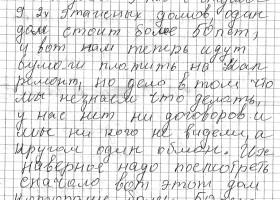 9 2х этажных домов, один
дом стоит более 50 лет,
у вот нам теперь идут
бумаги платить на кап
ремонт, но дело в том что
мы незнаем что делать,
у нас нет ни договоров и
мы ни кого не видели, а
кругом один обман. Их
наверное надо посмотреть
сначало вот этот дом